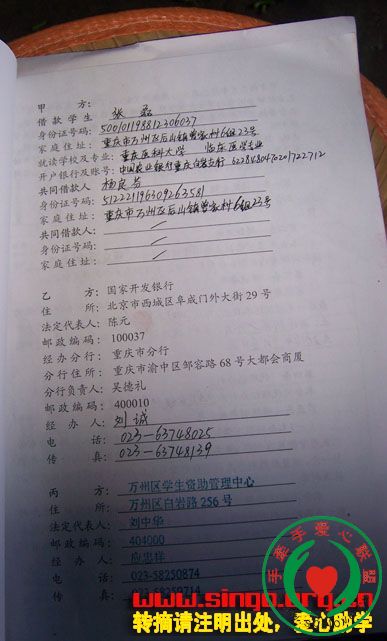 甲 方：
借款学生 张磊
身份证号码：500101198812306037
家庭住址：重庆市万州区后山镇曾家村6组23号
就读学校及专业：重庆医科大学 临床医学专业
开户银行及账号：中国农业银行重庆白安支行 6228480470201722712
共同借款人 杨良芬
身份证号码：512221196309263581
家庭住址：重庆市万州区后山镇曾家村6组23号
共同借款人：
身份证号码：
家庭住址：
乙 方：国家开发银行
住 所：北京市西城区阜成门外大街29号
法定代表人：陈元
邮政编码：100037
经办分行：重庆市分行
分行住所：重庆市渝中区邹容路68号大都会商厦
分行负责人：吴德礼
邮政编码：400010
经 办 人：刘诚
电 话：023-63748025
传 真：023-63748139
丙 方：万州区学生资助管理中心
住 所：万州区白岩路256号
法定代表人：刘中华
邮政编码：404000
经 办 人：应忠祥
电 话：023-58250874
传 真：023-58259714
手牵手爱心联盟
www.singo.org.cn
转摘请注明出处，爱心助学